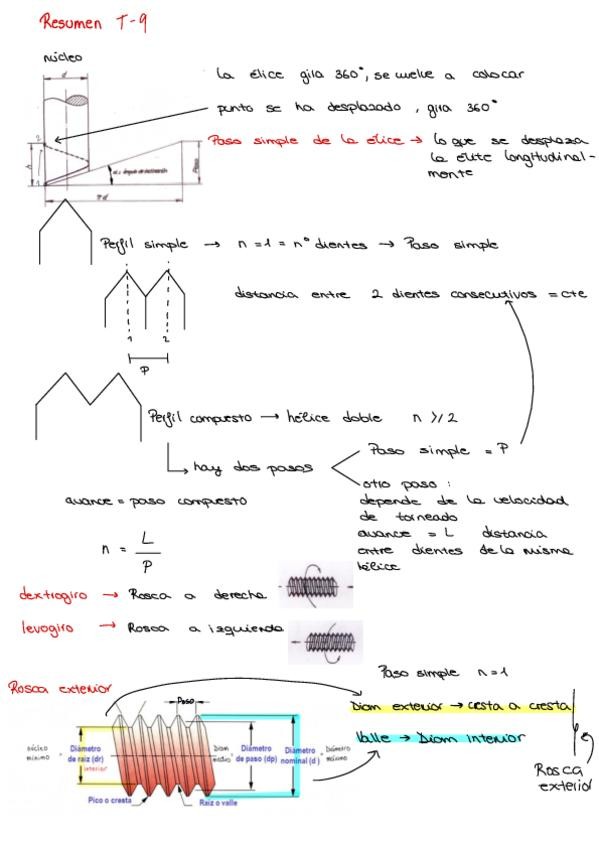 Resumen T-9
núcleo
d
La élice gira 360°, se vuelve a colocar
punto se ha desplazado, gira 360°
Paso simple de la élice → lo que se desplaza
la élite longitudinal-
monte
2
h
1
α = ángulo de inclinación
Paso
πd
Perfil simple → n = 1 = nº dientes → Paso simple
distancia entre 2 dientes consecutivos = cte
1 2
P
Perfil compuesto → hélice doble n ≥ 2
Paso simple = P
hay dos pasos
otro paso :
avance = paso compuesto
depende de la velocidad
de torneado
n = L / P
avance = L distancia
entre dientes de la misma
hélice
dextrogiro → Rosca a derecha
levogiro → Rosca a izquierda
Paso simple n=1
Rosca exterior
Paso
Diam exterior → cresta a cresta
Valle → Diam interior
núcleo
mínimo
=
Diámetro
de raiz (dr)
interior
Diam
medio
=
Diámetro
de paso (dp)
Diámetro
nominal (d)
=
Diámetro
máximo
Pico o cresta
Raiz o valle
Rosca
exterior